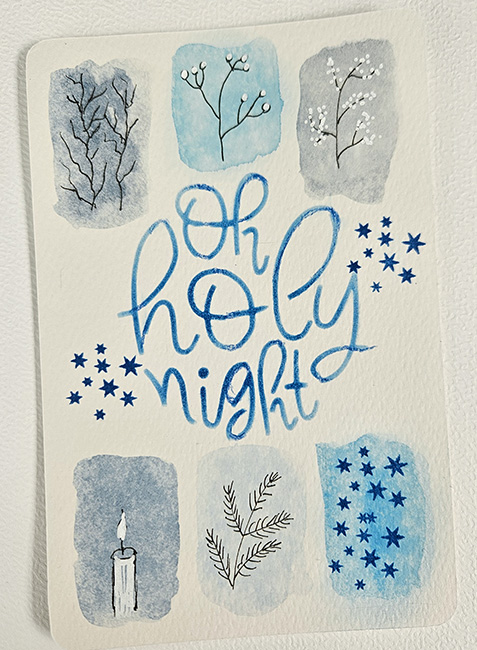 Oh
holy
night